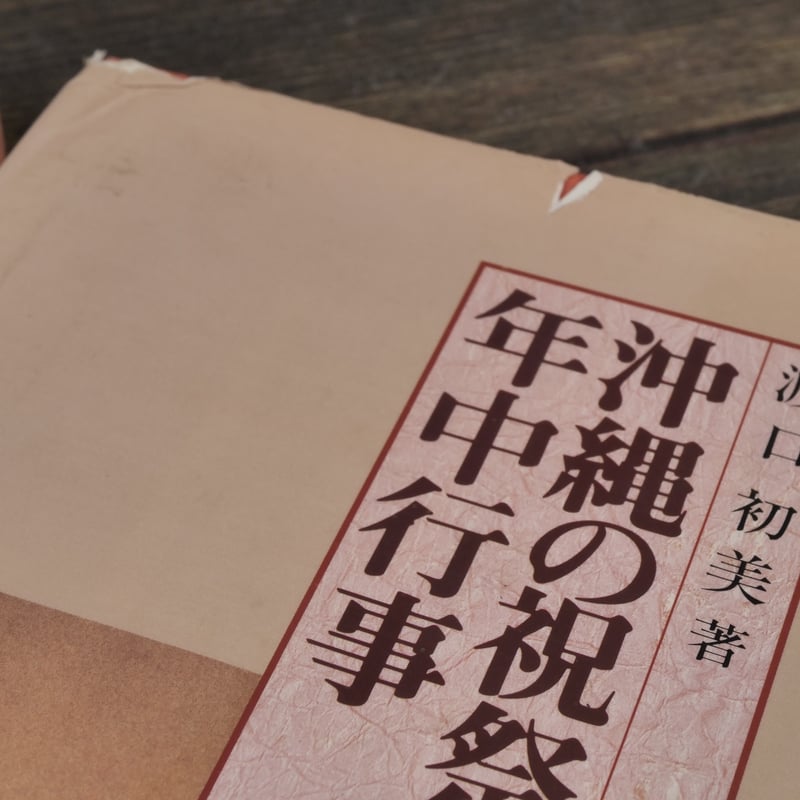 口初美著
沖縄の祝祭
年中行事